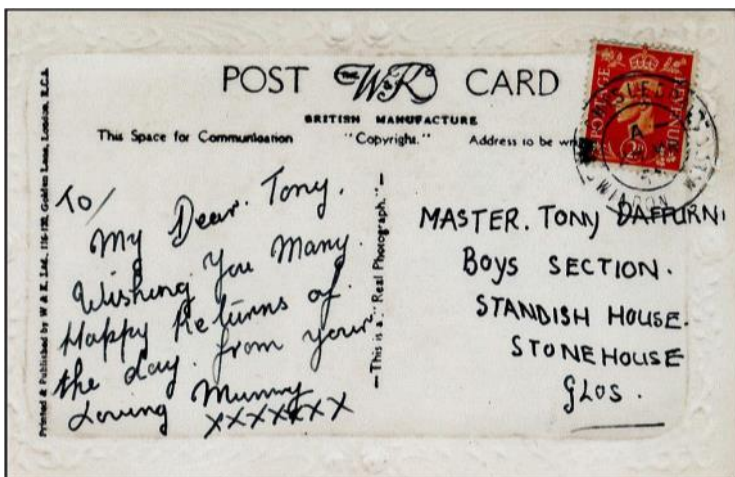 POST THE W&K CARD
BRITISH MANUFACTURE
This Space for Communication "Copyright." Address to be
Printed & Published by W & K Ltd., 116-120, Golden Lane, London, E.C.1.
To/
My Dear. Tony.
Wishing You Many.
Happy Returns of.
the day. from your
Loving Mummy
xxxxxxx
—This is a "Real Photograph."—
POSTAGE
REVENUE
MASTER. TONY DAFFURN
BOYS SECTION.
STANDISH HOUSE.
STONEHOUSE
GLOS.